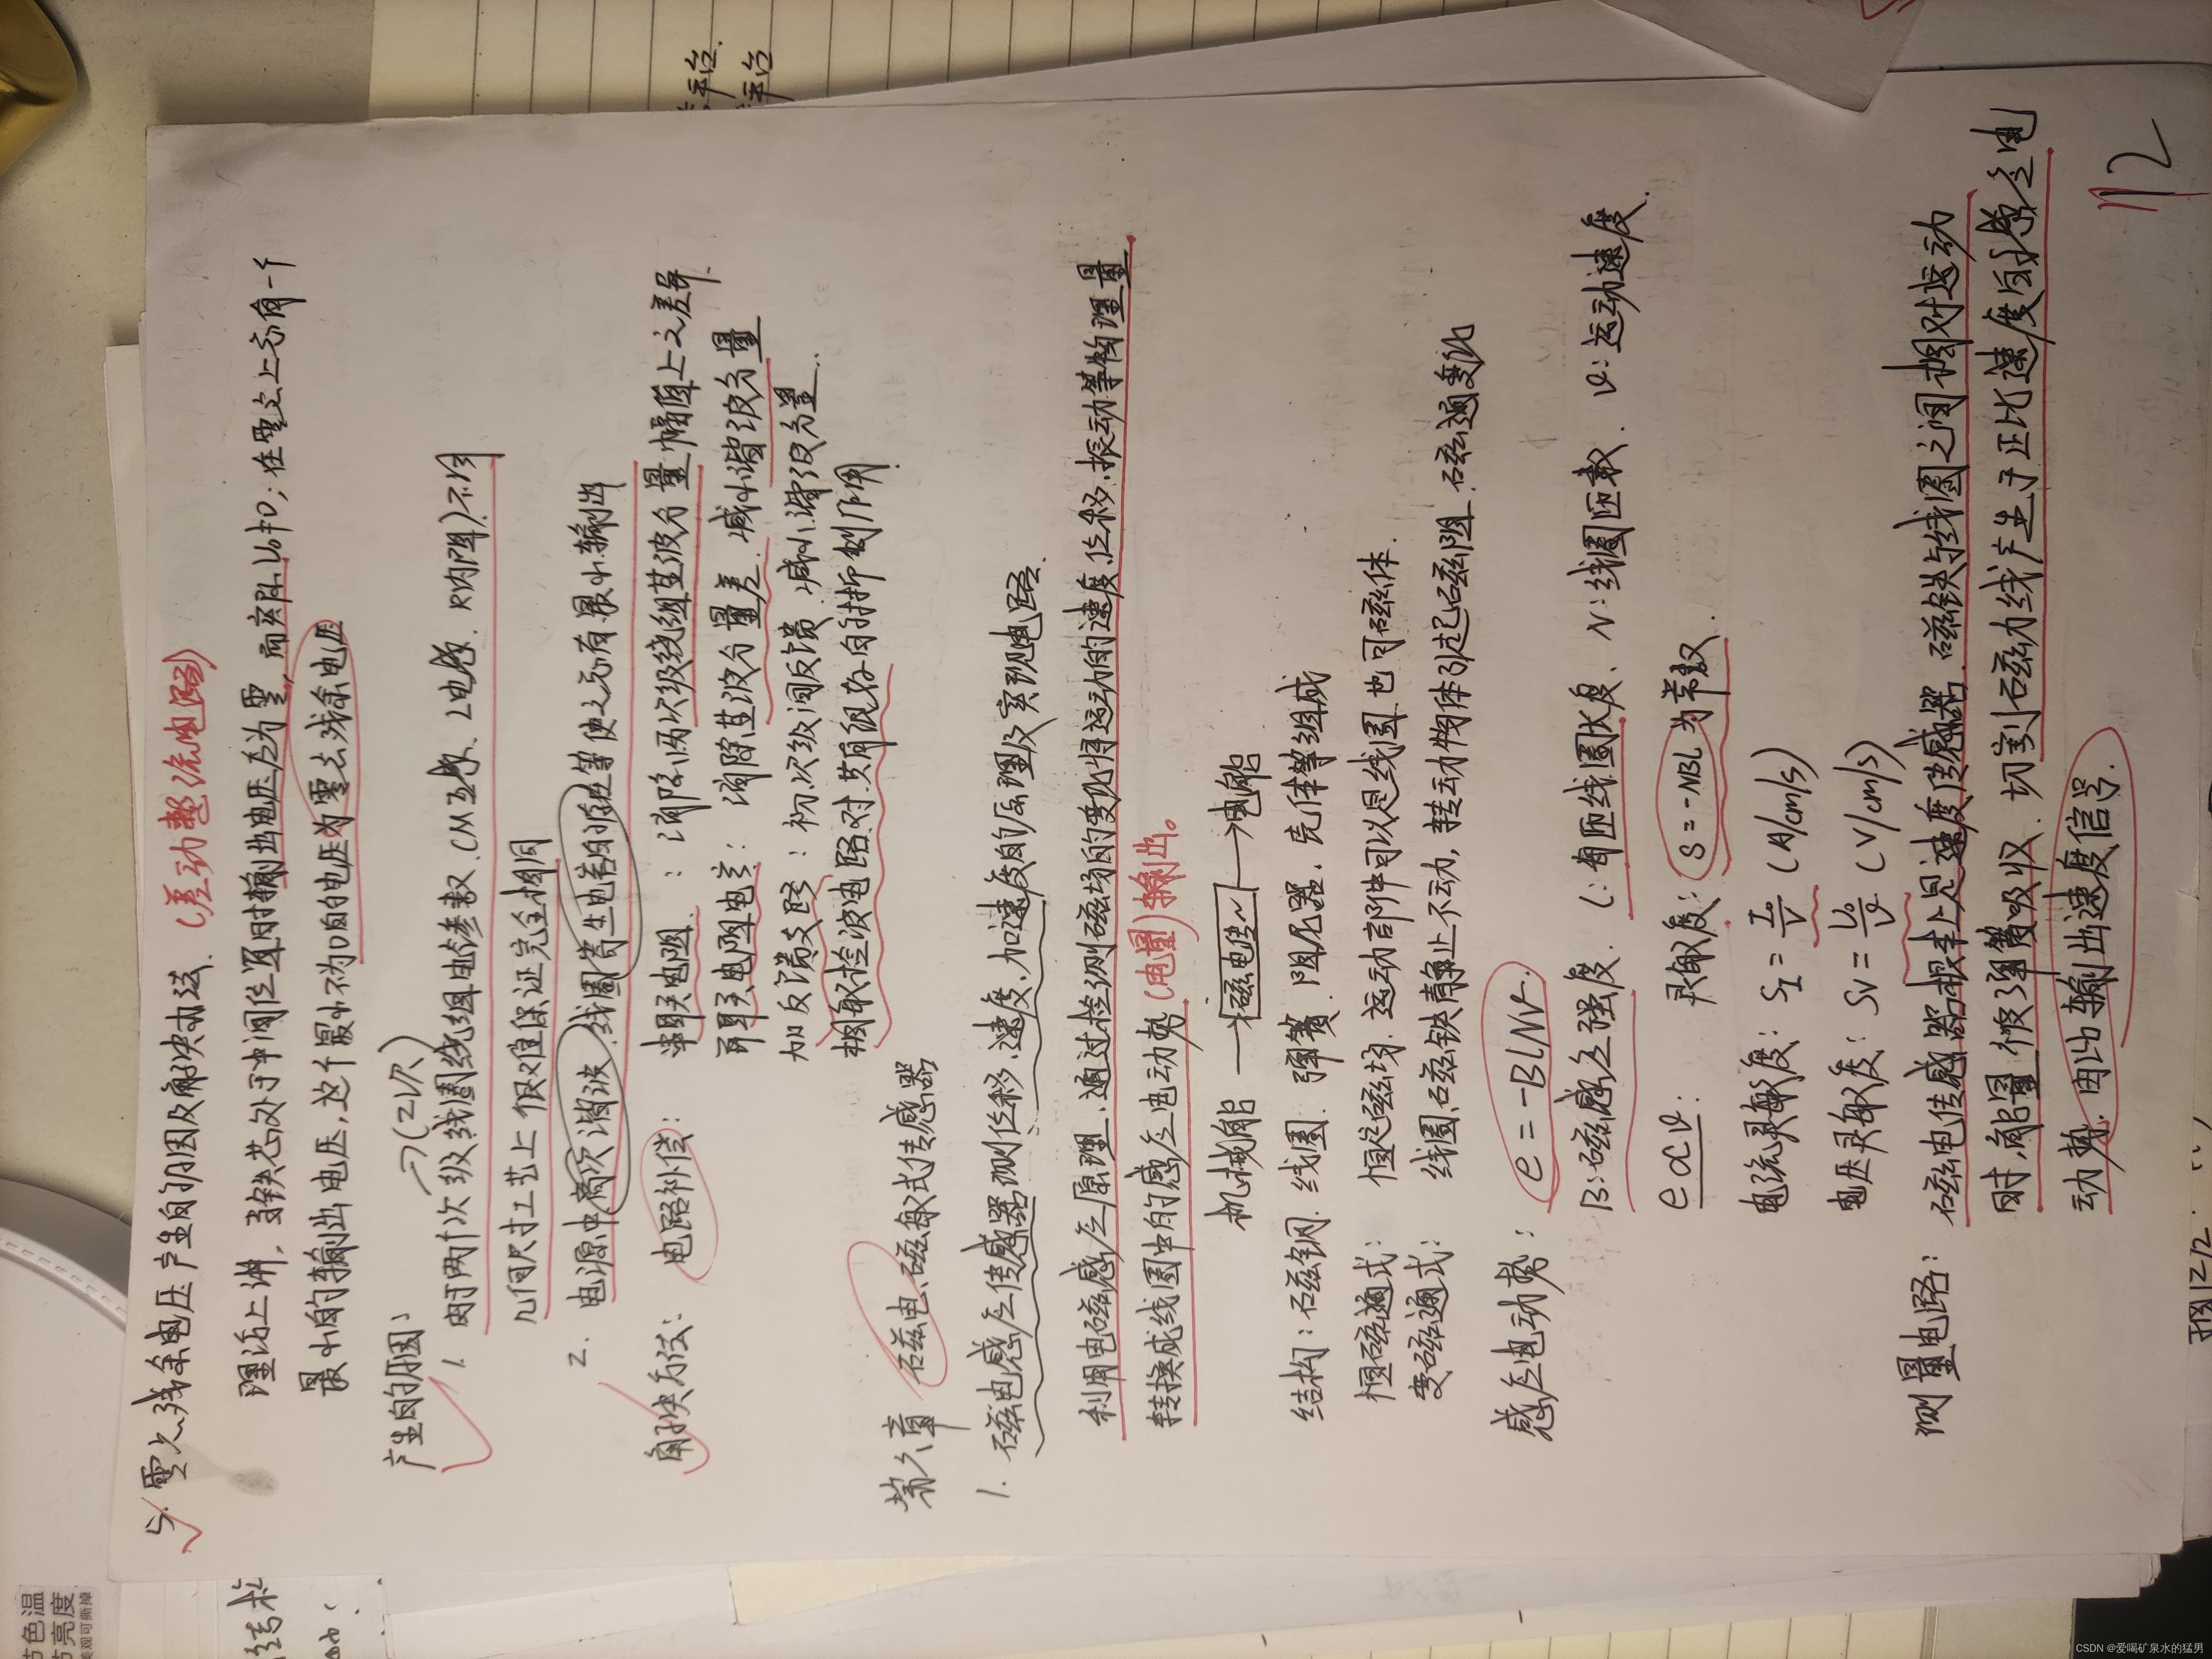 5. 零点残余电压产生的原因及解决办法. (差动整流电路)
理论上讲, 当铁芯处于中间位置时输出电压应为零, 而实际U₀≠0; 在零点上总有一个
最小的输出电压, 这个最小不为0的电压为零点残余电压
产生的原因:
→(2次)
1. 由于两个次级线圈绕组电参数. (M互感、L电感、R内阻)不同
几何尺寸工艺上很难保证完全相同
2. 电源中高次谐波, 线圈寄生电容的存在等使之总有最小输出
解决方法: 电路补偿: 串联电阻: 消除两次级绕组基波分量幅值上之差异.
并联电阻电容: 消除基波分量差. 减小谐波分量
加反馈支路: 初、次级间反馈, 减小谐波分量.
相敏检波电路对其有很好的抑制作用.
第六章 磁电、磁敏式传感器
1. 磁电感应传感器测位移、速度、加速度的原理及实现电路.
利用电磁感应原理, 通过检测磁场的变化将运动的速度、位移、振动等物理量
转换成线圈中的感应电动势 (电量) 输出。
机械能 → 磁电传~ → 电能
结构: 磁钢、线圈、弹簧、阻尼器、壳体等组成
恒磁通式: 恒定磁场, 运动部件可以是线圈也可磁体.
变磁通式: 线圈、磁铁静止不动, 转动物体引起磁阻、磁通变化
感应电动势: e = -BLNv.
B: 磁感应强度. L: 每匝线圈长度、N: 线圈匝数、v: 运动速度.
e∝v: 灵敏度: S = -NBL 为常数.
电流灵敏度: S_I = I₀/v (A/cm/s)
电压灵敏度: S_V = U₀/v (V/cm/s)
测量电路: 磁电传感器根本上是速度传感器, 磁铁与线圈之间相对运动
时, 能量被弹簧吸收, 切割磁力线产生于正比速度的感应电
动势, 因此输出速度信号.
112
平台.
平台
节色温
节亮度
美观可撕掉
图12/2.
CSDN @爱喝矿泉水的猛男